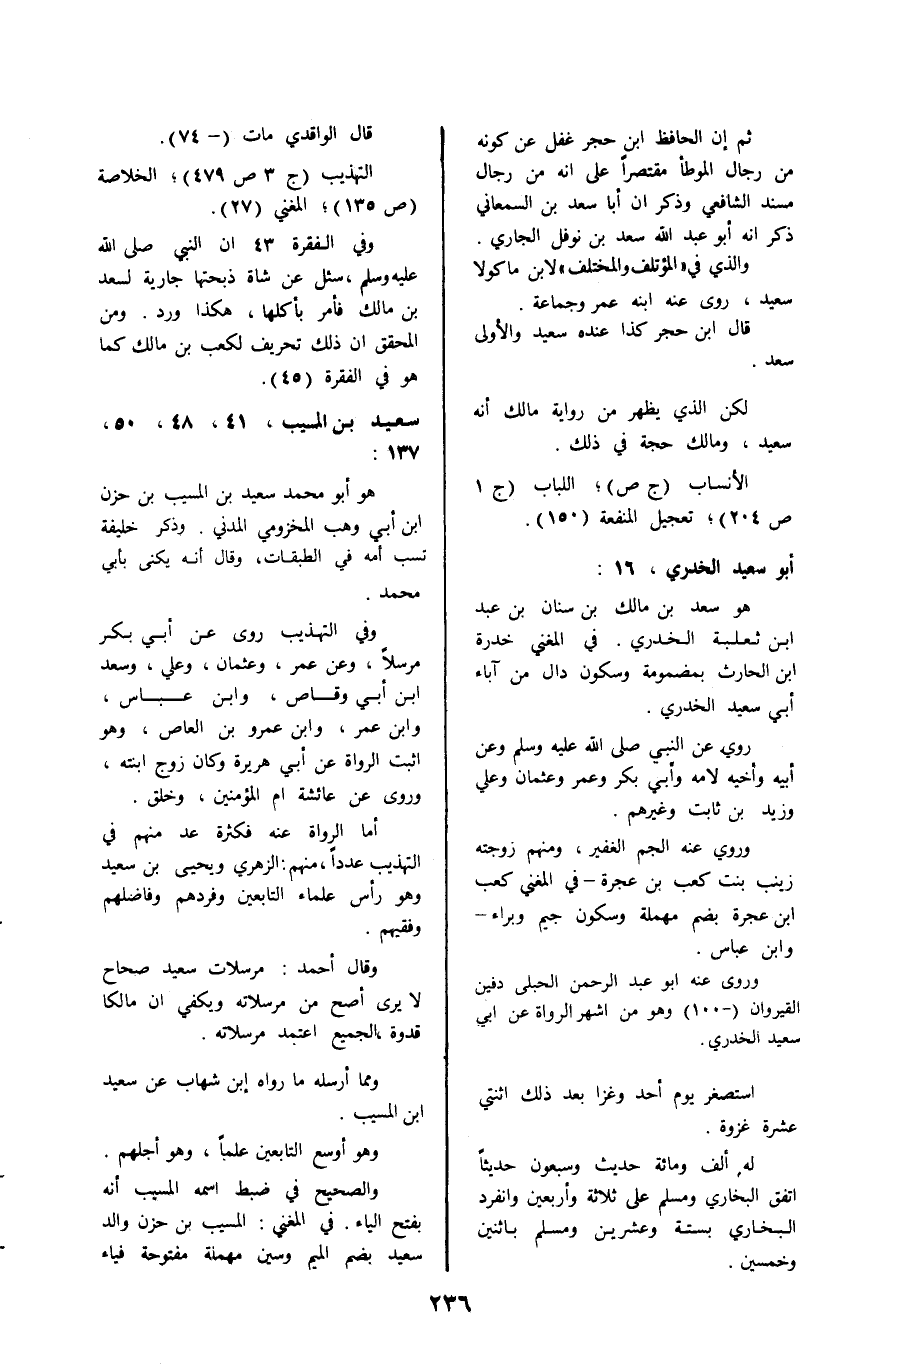 ثم إن الحافظ ابن حجر غفل عن كونه
من رجال الموطأ مقتصراً على انه من رجال
مسند الشافعي وذكر ان أبا سعد بن السمعاني
ذكر انه أبو عبد الله سعد بن نوفل الجاري .
والذي في «المؤتلف والمختلف» لابن ماكولا
سعيد ، روى عنه ابنه عمر وجماعة .
قال ابن حجر كذا عنده سعيد والأولى
سعد .
لكن الذي يظهر من رواية مالك أنه
سعيد ، ومالك حجة في ذلك .
الأنساب (ج ص)؛ اللباب (ج ١
ص ٢٠٤)؛ تعجيل المنفعة (١٥٠).
أبو سعيد الخدري ، ١٦ :
هو سعد بن مالك بن سنان بن عبد
ابن ثعلبة الخدري . في المغني خدرة
ابن الحارث بمضمومة وسكون دال من آباء
أبي سعيد الخدري .
روي عن النبي صلى الله عليه وسلم وعن
أبيه وأخيه لامه وأبي بكر وعمر وعثمان وعلي
وزيد بن ثابت وغيرهم .
وروي عنه الجم الغفير ، ومنهم زوجته
زينب بنت كعب بن عجرة – في المغني كعب
ابن عجرة بضم مهملة وسكون جيم وبراء –
وابن عباس .
وروى عنه ابو عبد الرحمن الحبلى دفين
القيروان (-١٠٠) وهو من اشهر الرواة عن ابي
سعيد الخدري.
استصغر يوم أحد وغزا بعد ذلك اثنتي
عشرة غزوة .
له ألف ومائة حديث وسبعون حديثاً
اتفق البخاري ومسلم على ثلاثة وأربعين وانفرد
البخاري بستة وعشرين ومسلم باثنين
وخمسين .
قال الواقدي مات (- ٧٤).
التهذيب (ج ٣ ص ٤٧٩)؛ الخلاصة
(ص ١٣٥)؛ المغني (٢٧).
وفي الفقرة ٤٣ ان النبي صلى الله
عليه وسلم ،سئل عن شاة ذبحتها جارية لسعد
بن مالك فأمر بأكلها ، هكذا ورد . ومن
المحقق ان ذلك تحريف لكعب بن مالك كما
هو في الفقرة (٤٥).
سعيد بن المسيب ، ٤١ ، ٤٨ ، ٥٠ ،
١٣٧ :
هو أبو محمد سعيد بن المسيب بن حزن
ابن أبي وهب المخزومي المدني . وذكر خليفة
نسب أمه في الطبقات، وقال أنه يكنى بأبي
محمد .
وفي التهذيب روى عن أبي بكر
مرسلاً ، وعن عمر ، وعثمان ، وعلي ، وسعد
ابن أبي وقاص ، وابن عباس ،
وابن عمر ، وابن عمرو بن العاص ، وهو
اثبت الرواة عن أبي هريرة وكان زوج ابنته ،
وروى عن عائشة ام المؤمنين ، وخلق .
أما الرواة عنه فكثرة عد منهم في
التهذيب عدداً ،منهم:الزهري ويحيى بن سعيد
وهو رأس علماء التابعين وفردهم وفاضلهم
وفقيهم .
وقال أحمد : مرسلات سعيد صحاح
لا يرى أصح من مرسلاته ويكفي ان مالكا
قدوة الجميع اعتمد مرسلاته .
ومما أرسله ما رواه إبن شهاب عن سعيد
ابن المسيب .
وهو أوسع التابعين علماً ، وهو أجلهم .
والصحيح في ضبط اسمه المسيب أنه
بفتح الياء . في المغني : المسيب بن حزن والد
سعيد بضم الميم وسين مهملة مفتوحة فياء
٢٣٦